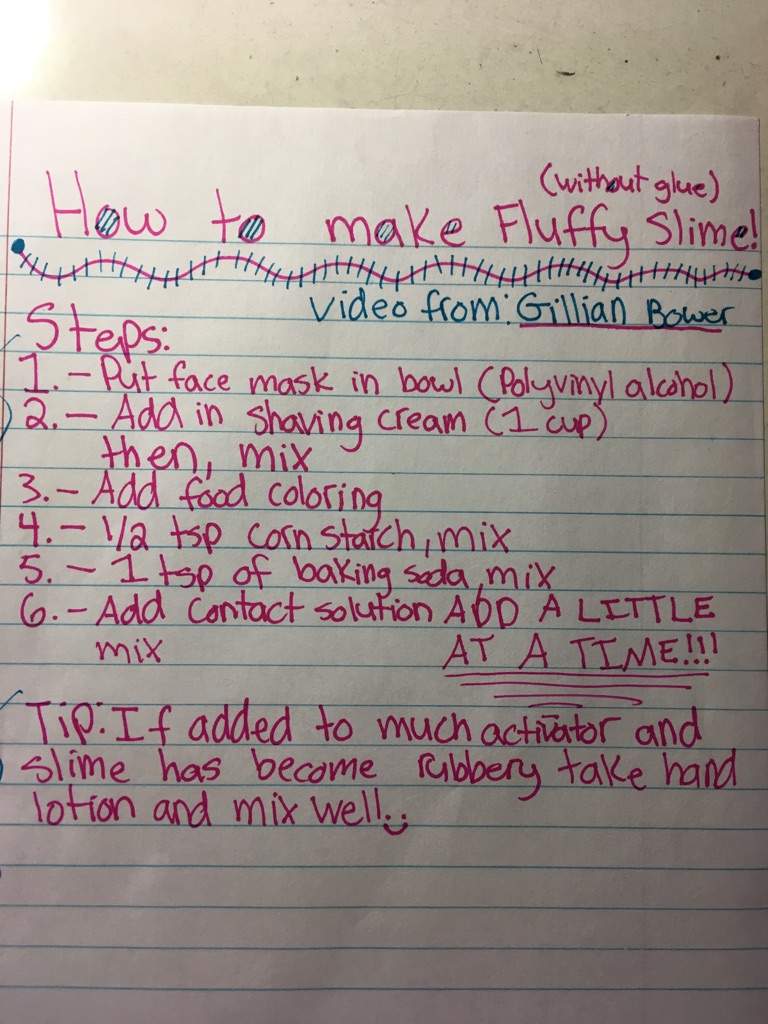 (without glue)
How to make Fluffy Slime!
Video from: Gillian Bower
Steps:
1. - Put face mask in bowl (Polyvinyl alcohol)
2. - Add in shaving cream (1 cup)
then, mix
3. - Add food coloring
4. - 1/2 tsp corn starch, mix
5. - 1 tsp of baking soda, mix
6. - Add contact solution ADD A LITTLE
mix AT A TIME!!!
Tip: If added to much activator and
slime has become rubbery take hand
lotion and mix well